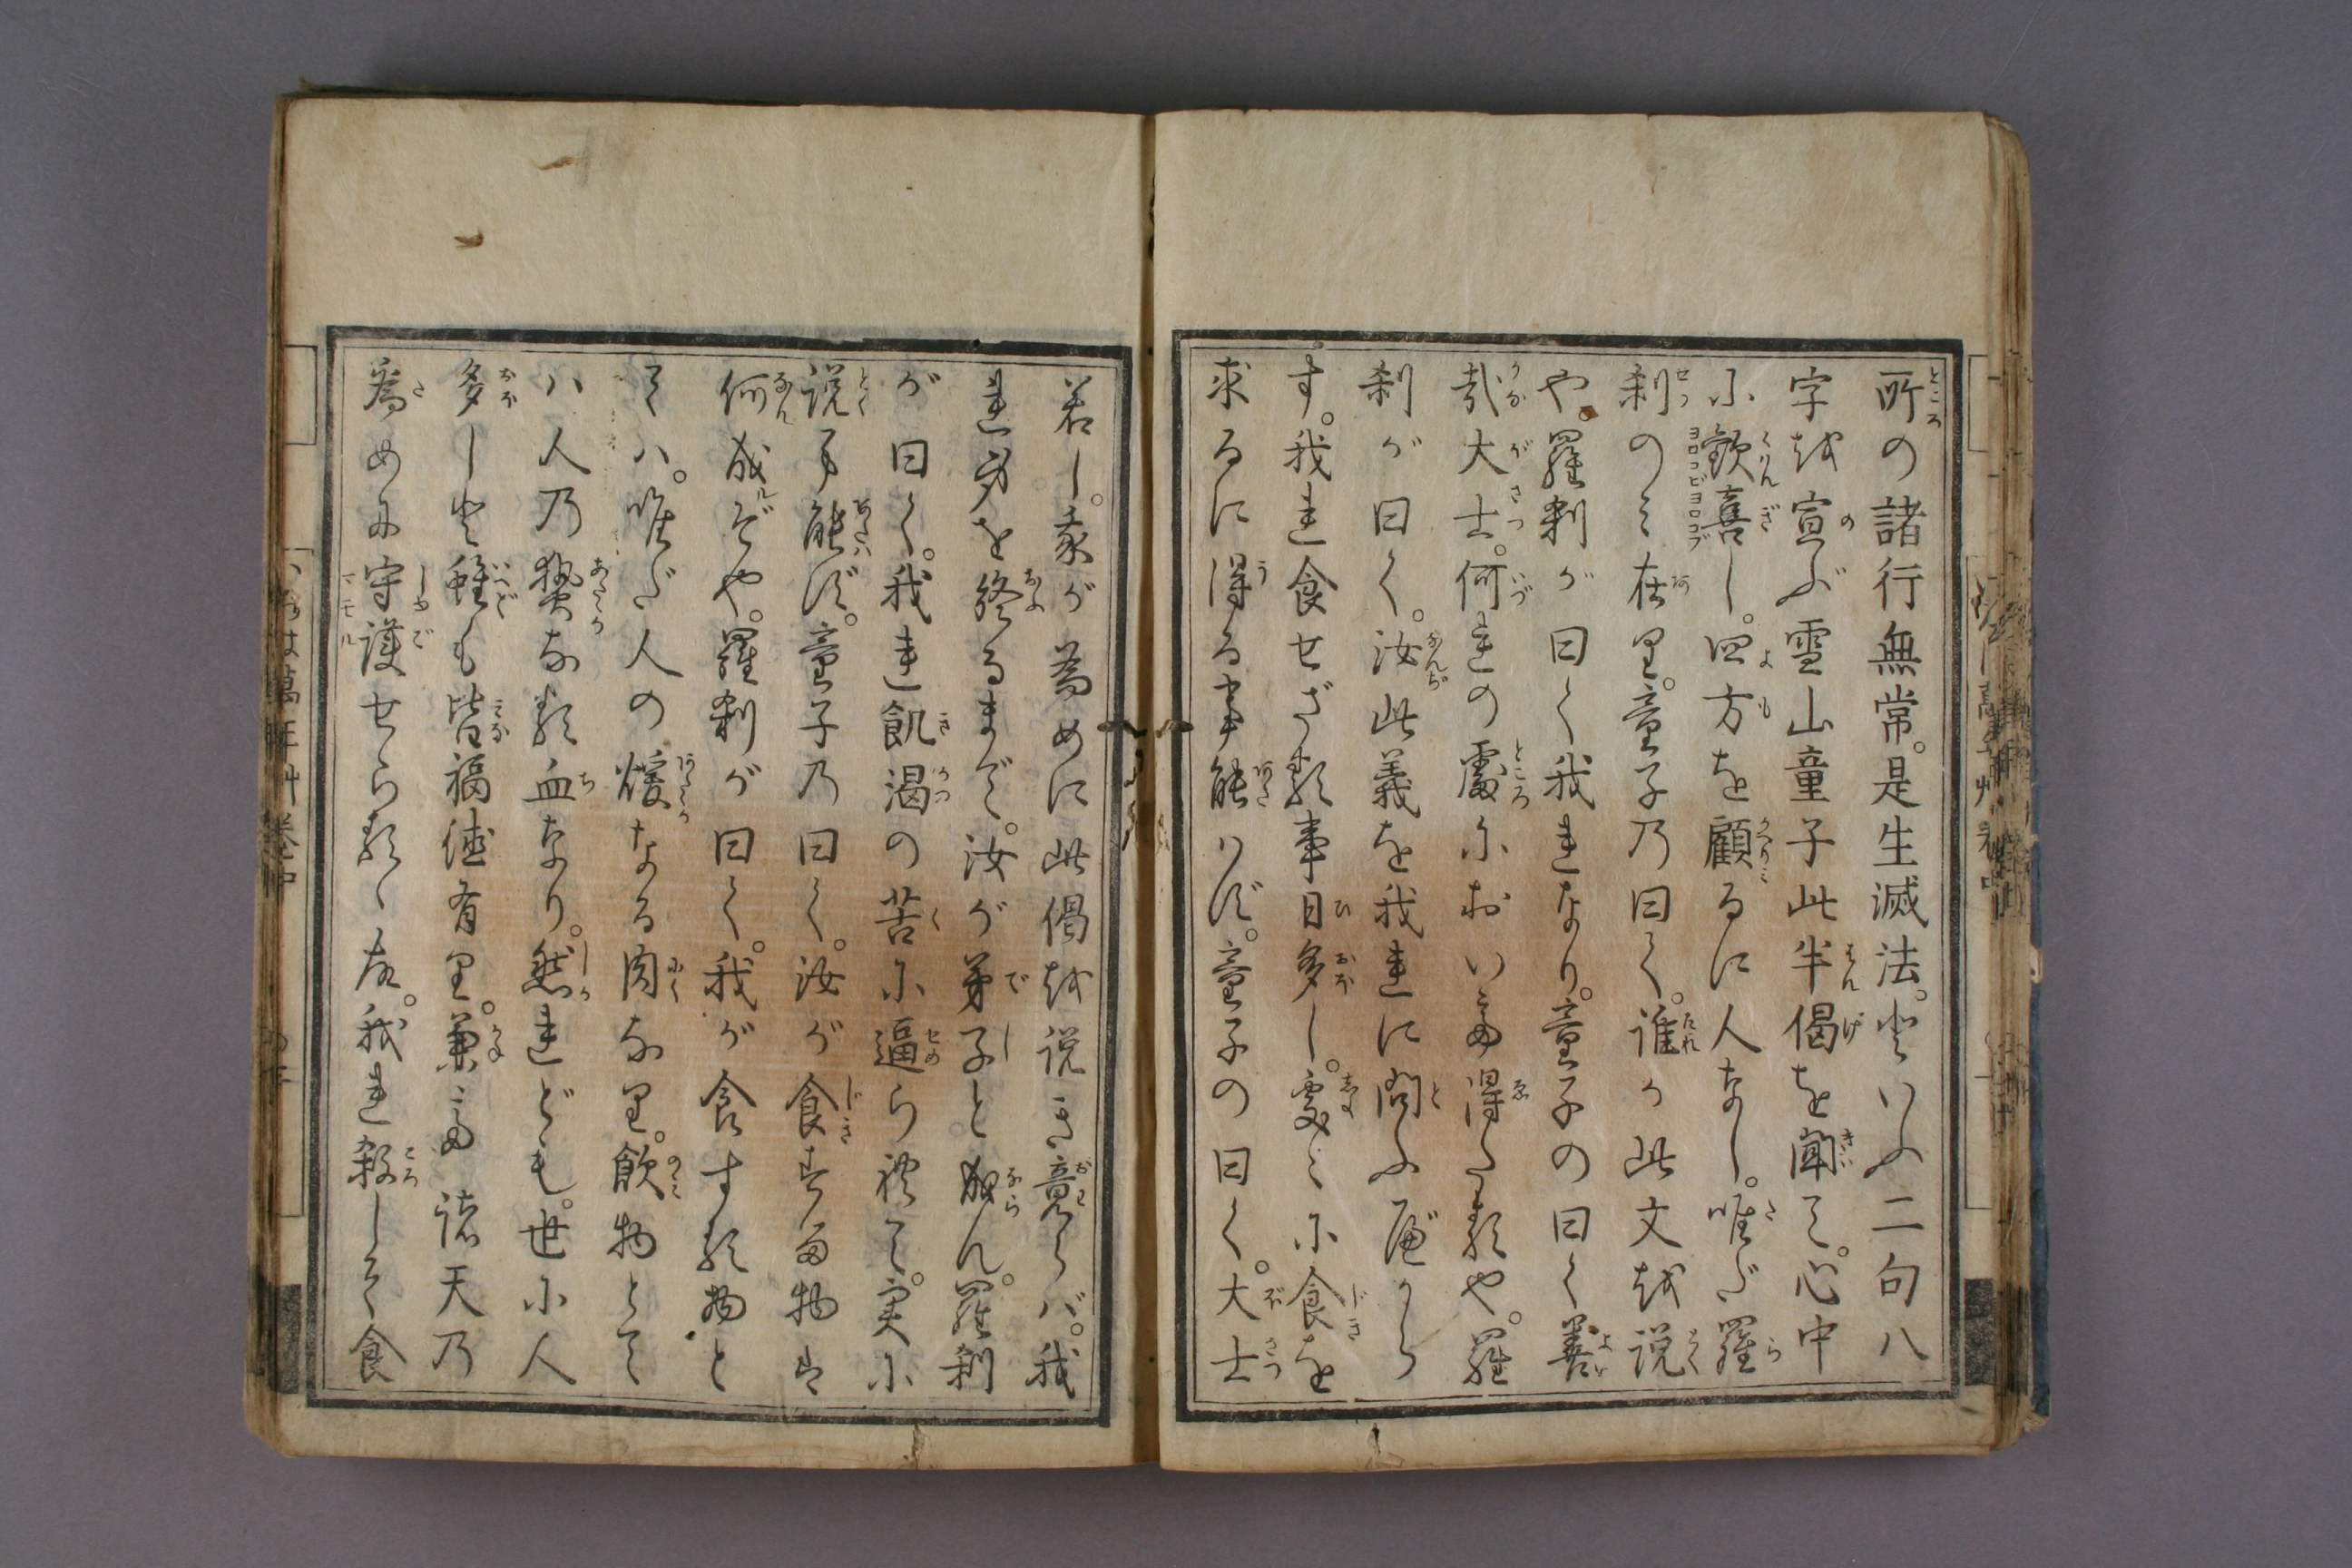 所の諸行無常。是生滅法。といふ二句八
字を宣ぶ雪山童子此半偈を聞て。心中
に歓喜し。四方を顧るに人なし。唯だ羅
刹のミ在り。童子乃曰く。誰か此文を説
や。羅刹が曰く我れなり。童子の曰く善
哉大士。何れの處において得たるや。羅
刹が曰く。汝此義を我れに問ふ べから
す。我れ食せざる事日多し。處々に食を
求るに得る事能ハず。童子の曰く。大士
若し。我が為めに此偈を説き竟らバ。我
れ身を終るまで。汝が弟子と成らん。羅刹
が曰く。我れ飢渇の苦に逼られて。実に
説事能ず。童子乃曰く。汝が食する物は
何成ぞや。羅刹が曰く。我が食する物と
てハ。唯だ人の煖なる肉なり。飲物とて
ハ人乃熱なる血なり。然れども。世に人
多しと雖も皆福徳有り。兼て諸天乃
為めに守護せらるゝ故。我れ殺して食